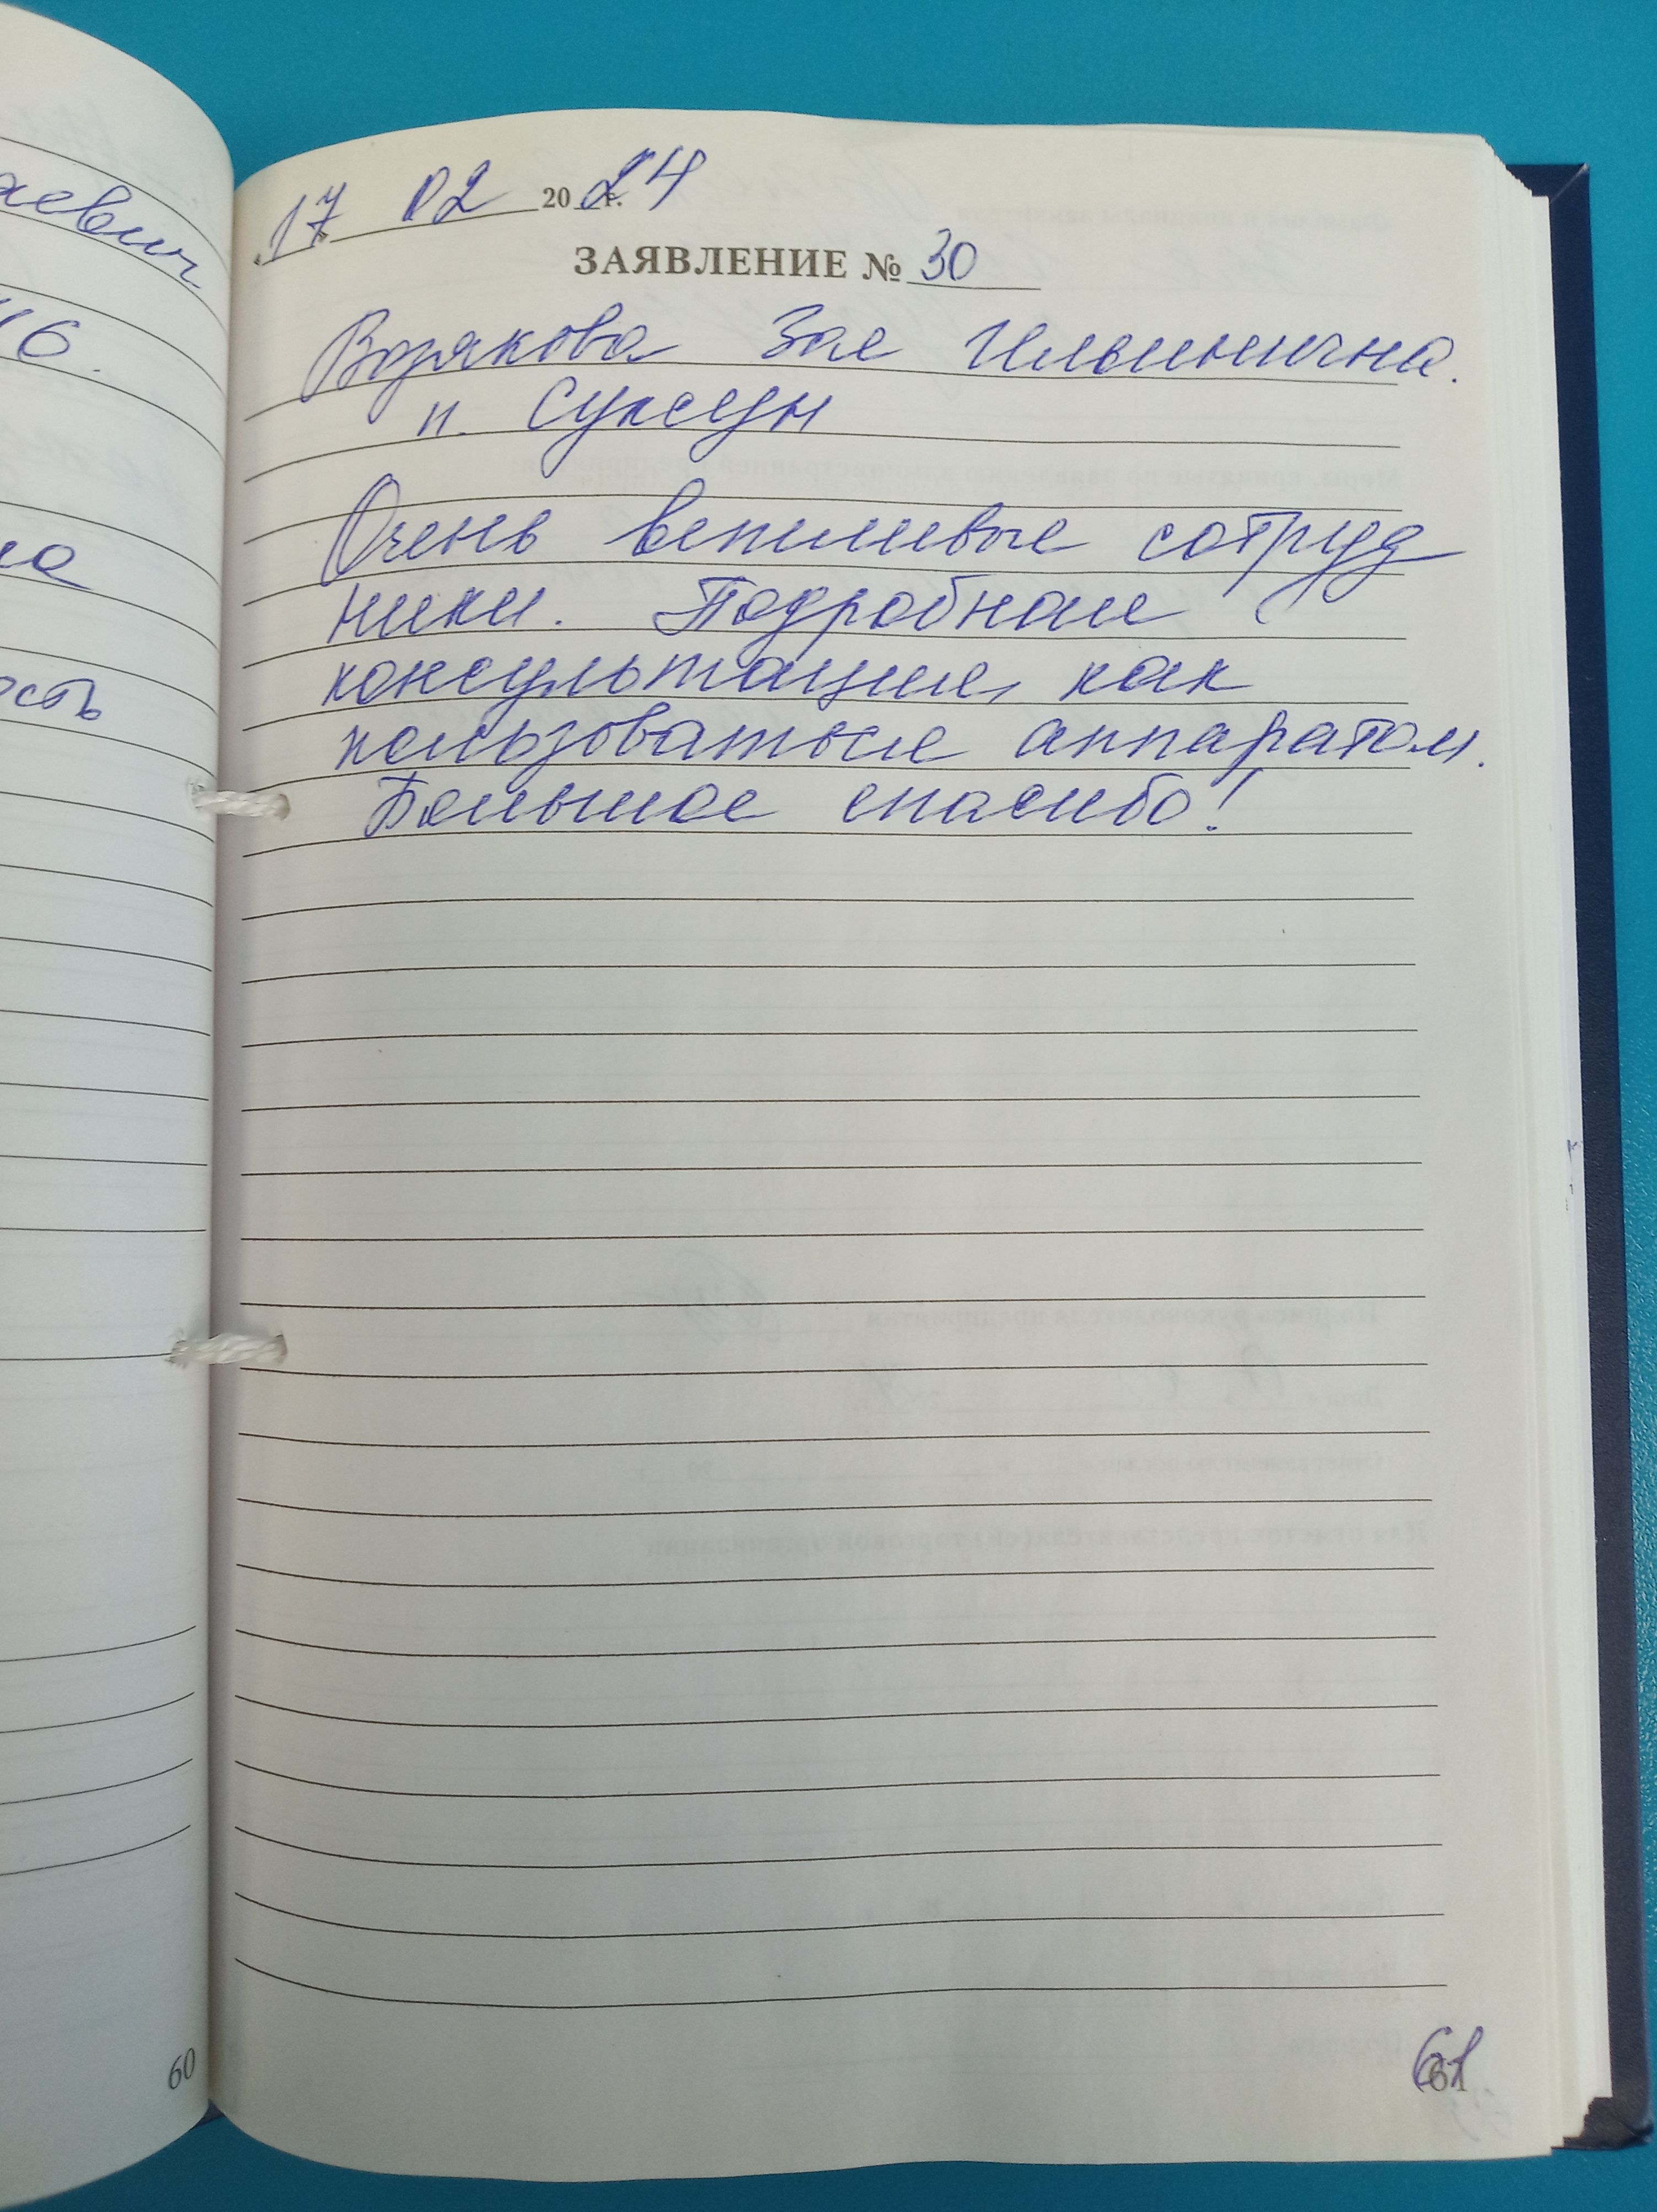 аевич
16.
на
ость
60
17 02 2024 г.
ЗАЯВЛЕНИЕ № 30
Зоя Ильинична.
п. Суксун
Очень вежливые сотруд
ники. Подробная
консультация, как
пользоваться аппаратом.
Большое спасибо!
61